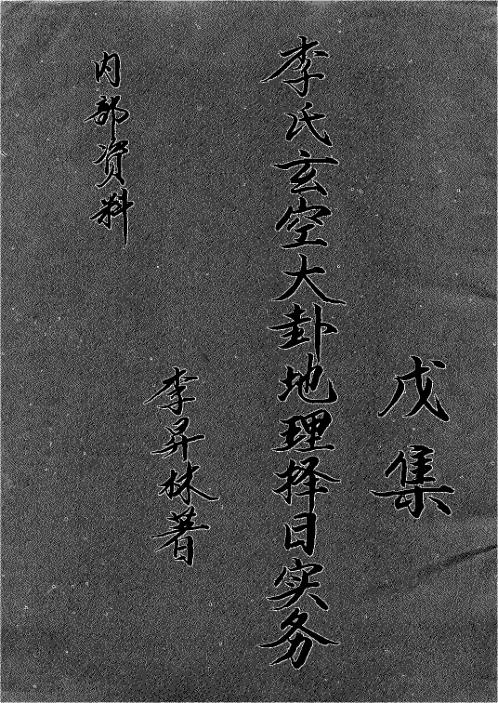 戊集
李氏玄空大卦地理择日实务
李昇林著
内部资料